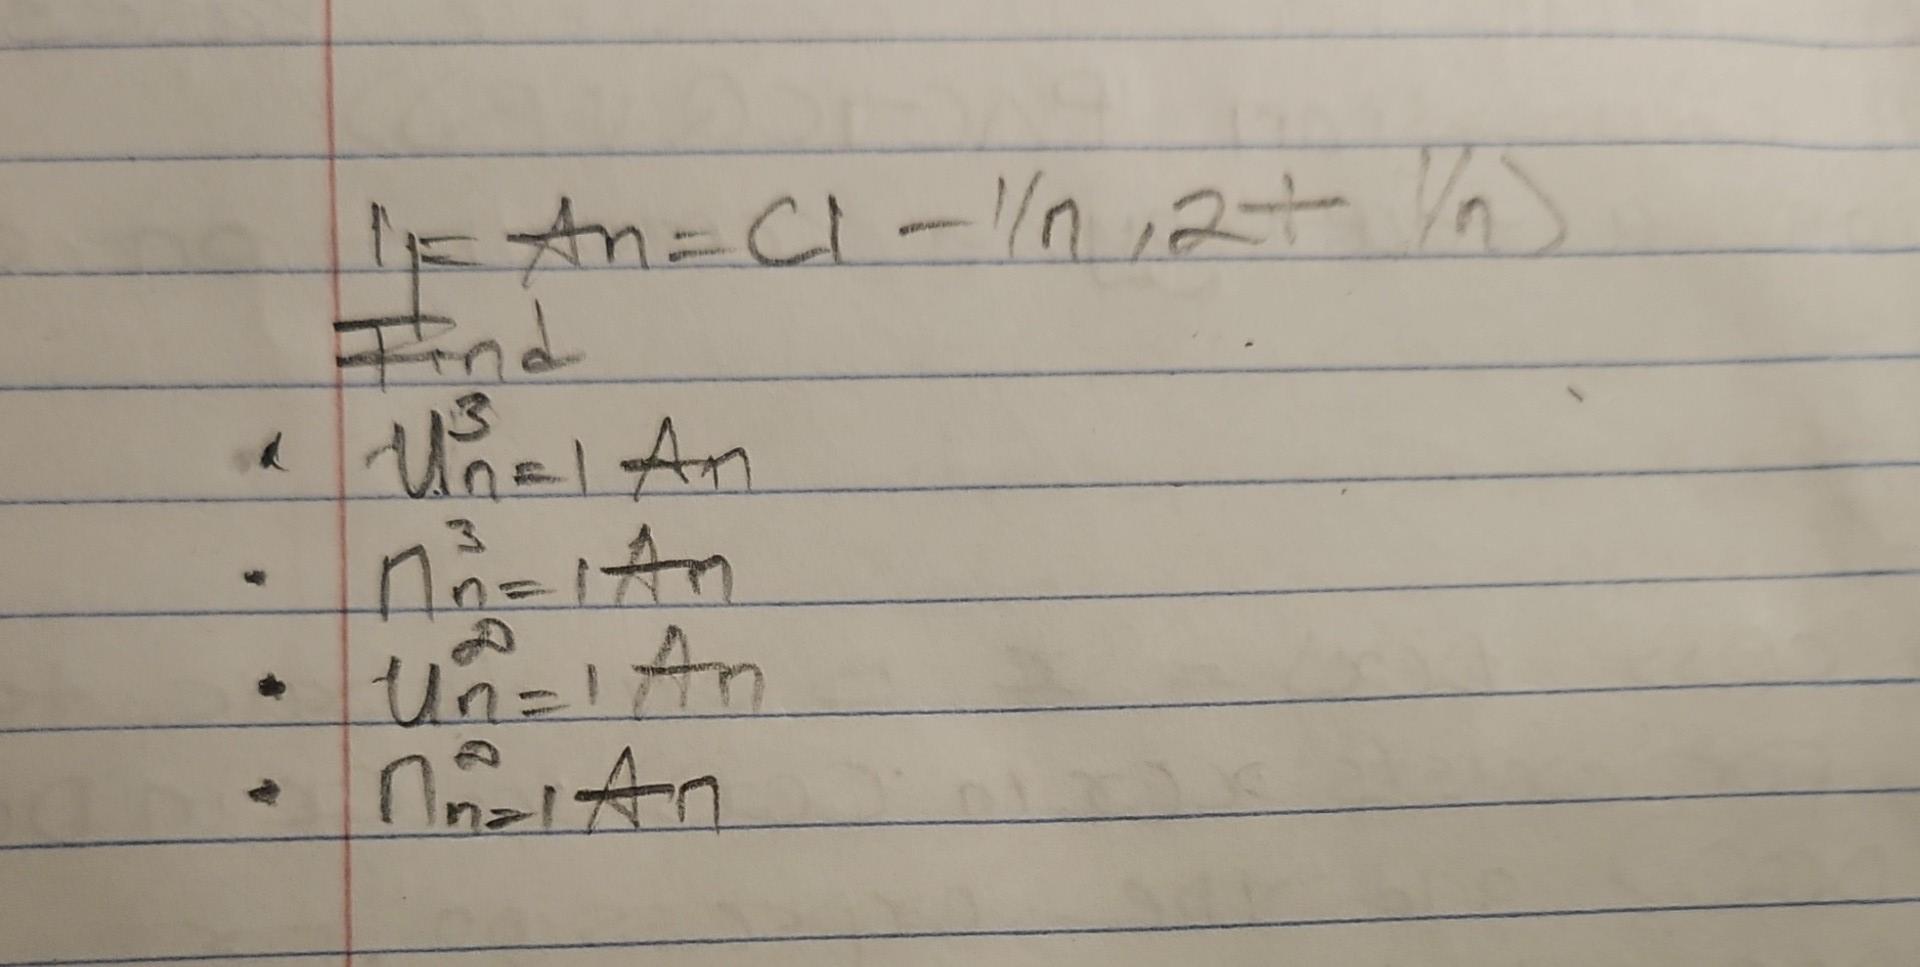 If An = (1 - 1/n, 2 + 1/n)
Find
• ∪³n=1 An
• ∩³n=1 An
• ∪∞n=1 An
• ∩∞n=1 An